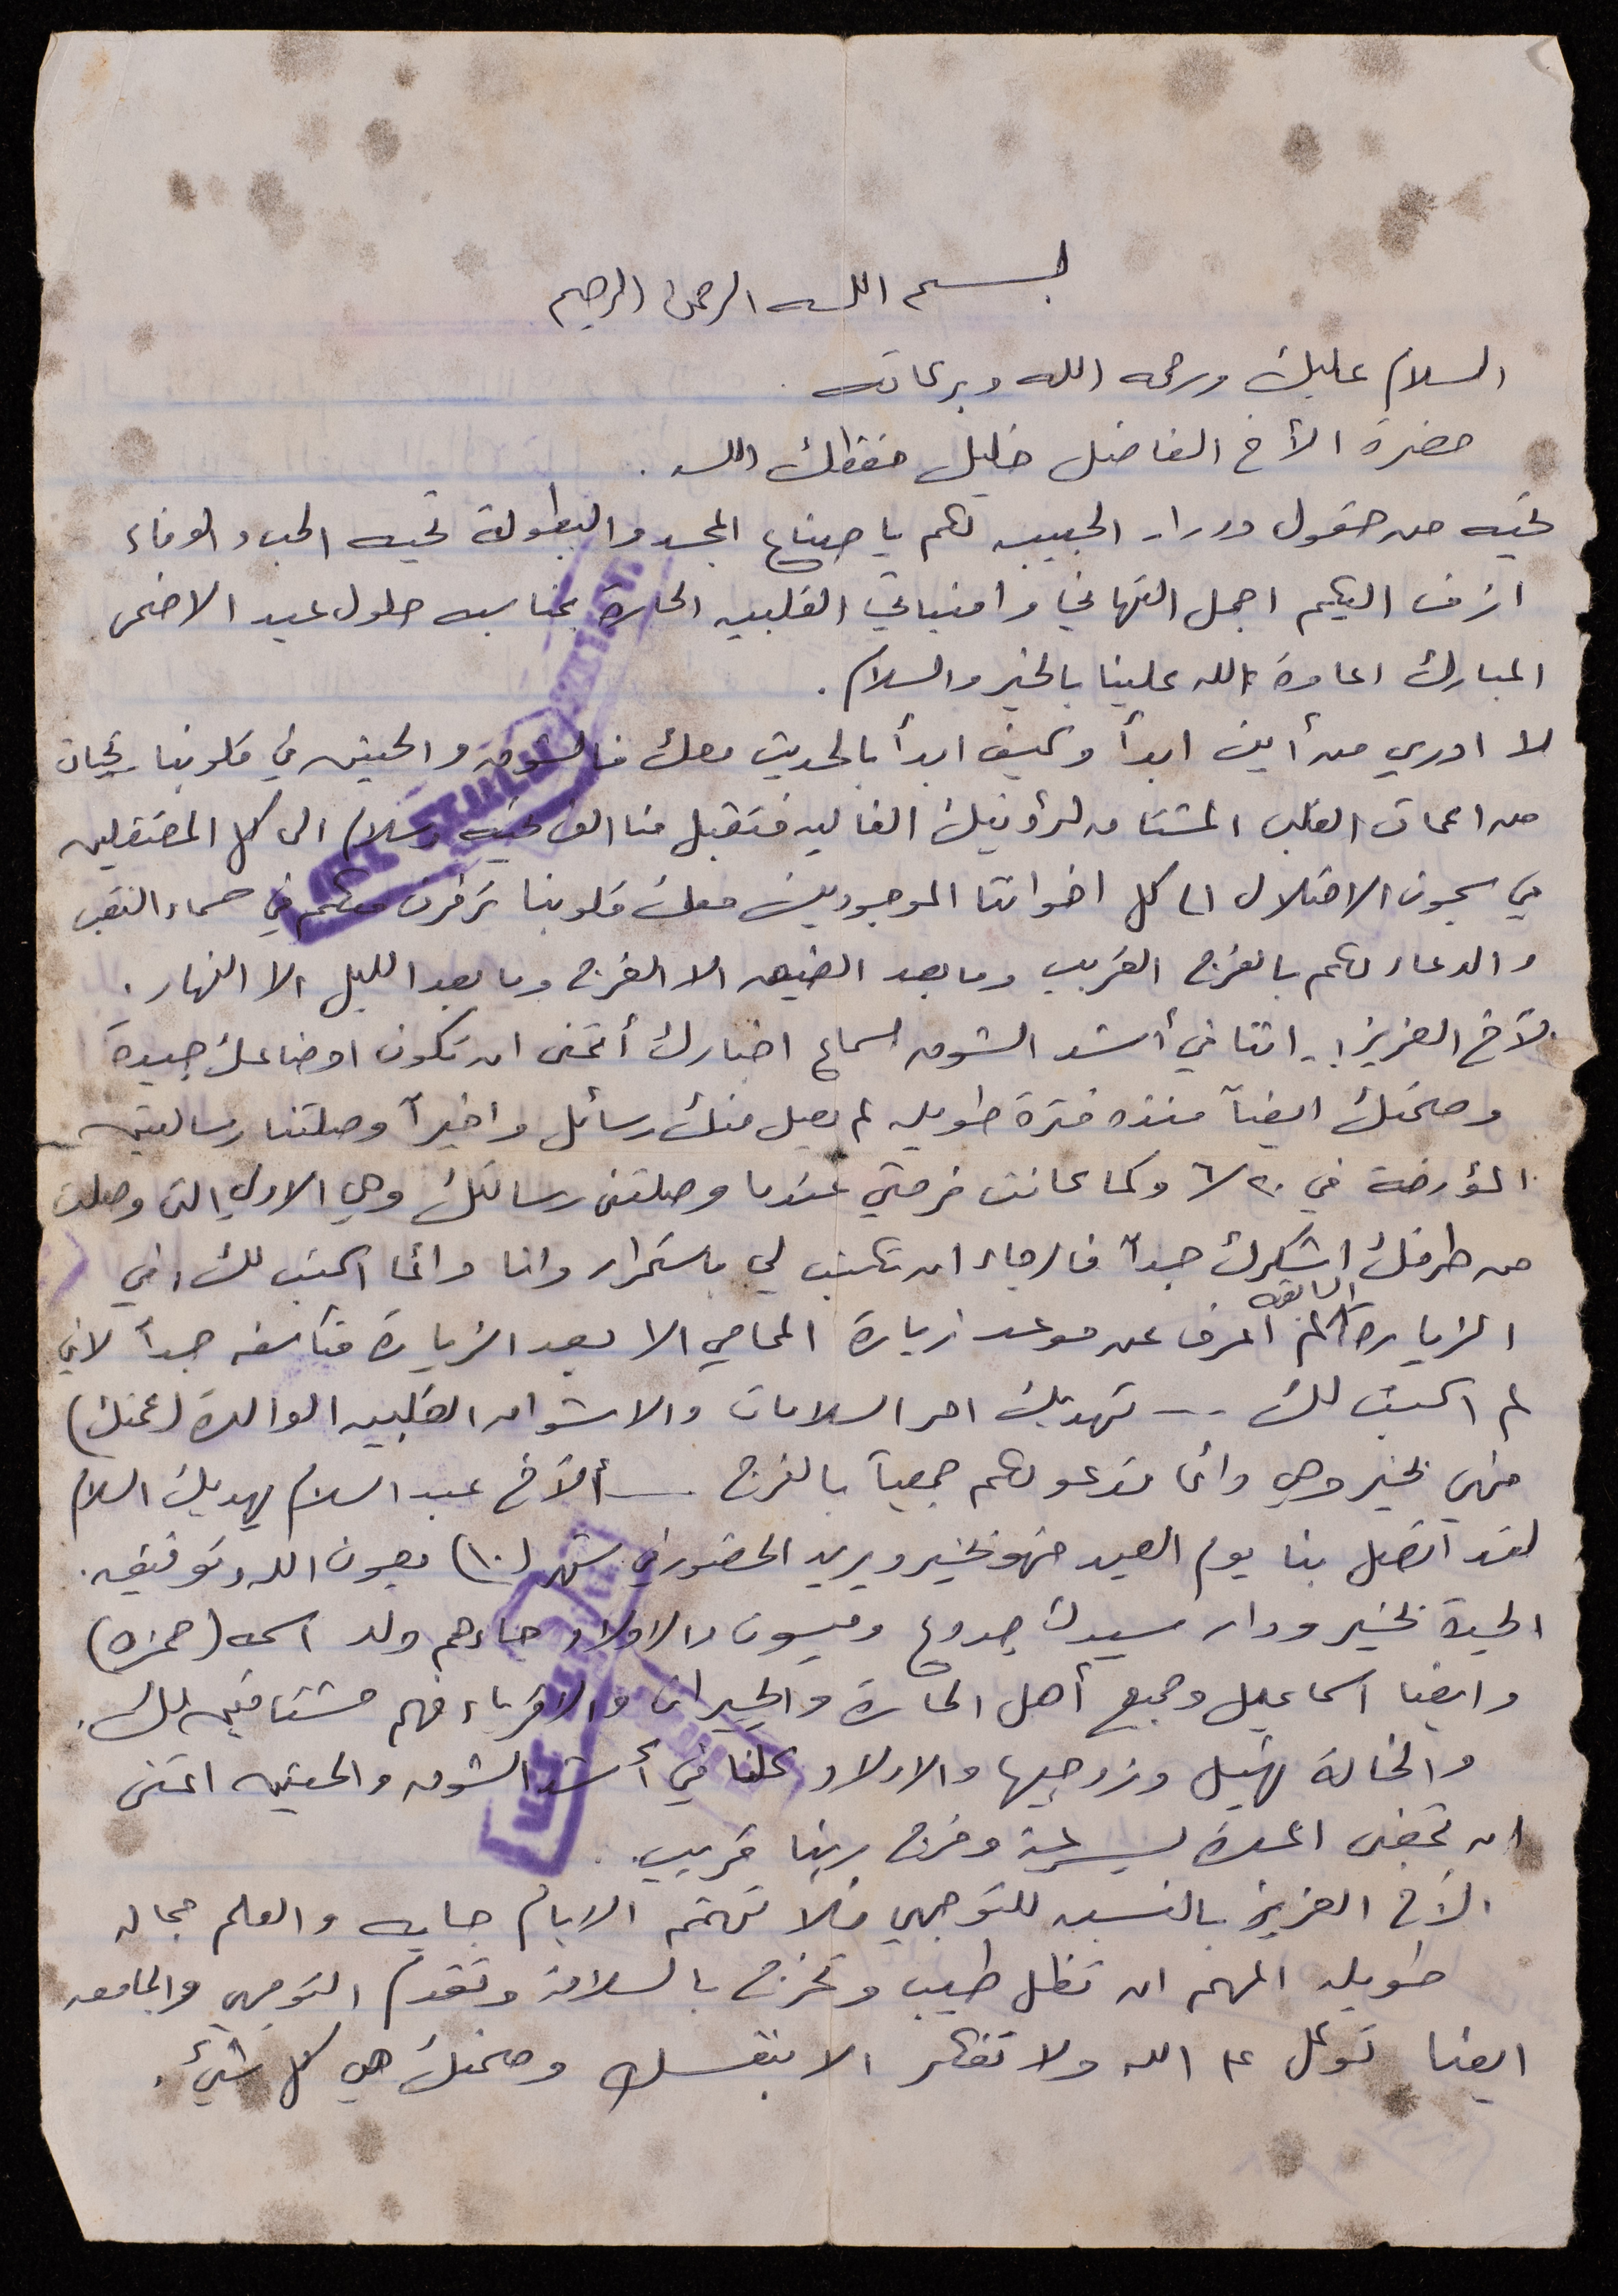 بسم الله الرحمن الرحيم
السلام عليك ورحمه الله وبركاته .
حضرة الأخ الفاضل خليل حفظك الله .
تحيه من حقول ودرار الحبيبه لكم يا صناع المجد والبطولة تحيه الحب والوفاء
ازف اليكم اجمل التهاني وامنياتي القلبيه الحارة بمناسبه حلول عيد الاضحى
المبارك اعاده الله علينا بالخير والسلام .
لا ادري من أين ابدأ وكيف ابدأ بالحديث معك فالشوق والحنين في قلوبنا
من اعماق القلب المشتاق لرؤيتك الغاليه فتقبل منا الف تحيه وسلام الى كل المعتقلين
في سجون الاحتلال الى كل اخواننا الموجودين معك قلوبنا ترفرف معكم في سماء النقب
والدعاء لكم بالفرج القريب وما بعد الضيق الا الفرج وما بعد الليل الا النهار .
الأخ العزيز : اننا في أشد الشوق لسماع اخبارك أتمنى ان تكون اوضاعك جيدة
وصحتك ايضاً منذ فترة طويله لم يصل منك رسائل واخيراً وصلتنا رسالتين
المؤرخة في ٦/٢٠ وكما كانت فرحتي عندما وصلتني رسالتك وهي الاولى التي وصلت
من طرفك اشكرك جداً فالرجاء ان تكتب لي باستمرار وانا دائما اكتب لك في
الزيارة السابقه لم اعرف عن موعد زيارة المحامي الا بعد الزيارة متأسفه جداً لاني
لم اكتب لك -- تهديك احر السلامات والاشواق القلبيه الوالدة (عمتك)
فهي بخير وهي دائما تدعو لكم جميعاً بالفرج - ألأخ عبد السلام يهديك السلام
لقد اتصل بنا يوم العيد فهو بخير ويريد الحضور في شهر (١٠) بعون الله وتوفيقه .
الحية بخير ودار سيدك جدوع وميسون والاولاد جاءهم ولد اسمه (حمزه)
وايضا اسماعيل وجميع أهل الحارة والجيران والاقرباء فهم مشتاقين لك .
والخالة نهيل وزوجها والاولاد كلنا في أشد الشوق والحنين اتمنى
ان تمضى المدة بسرعة وفرج ربنا قريب .
الأخ العزيز بالنسبه للتوجيهي فلا تهتم الايام جايه والعلم مجاله
طويله المهم ان تظل طيب وتخرج بالسلامة وتقدم التوجيهي والجامعه
ايضا توكل على الله ولا تفكر الا بنفسك وصحتك هي كل شيء .